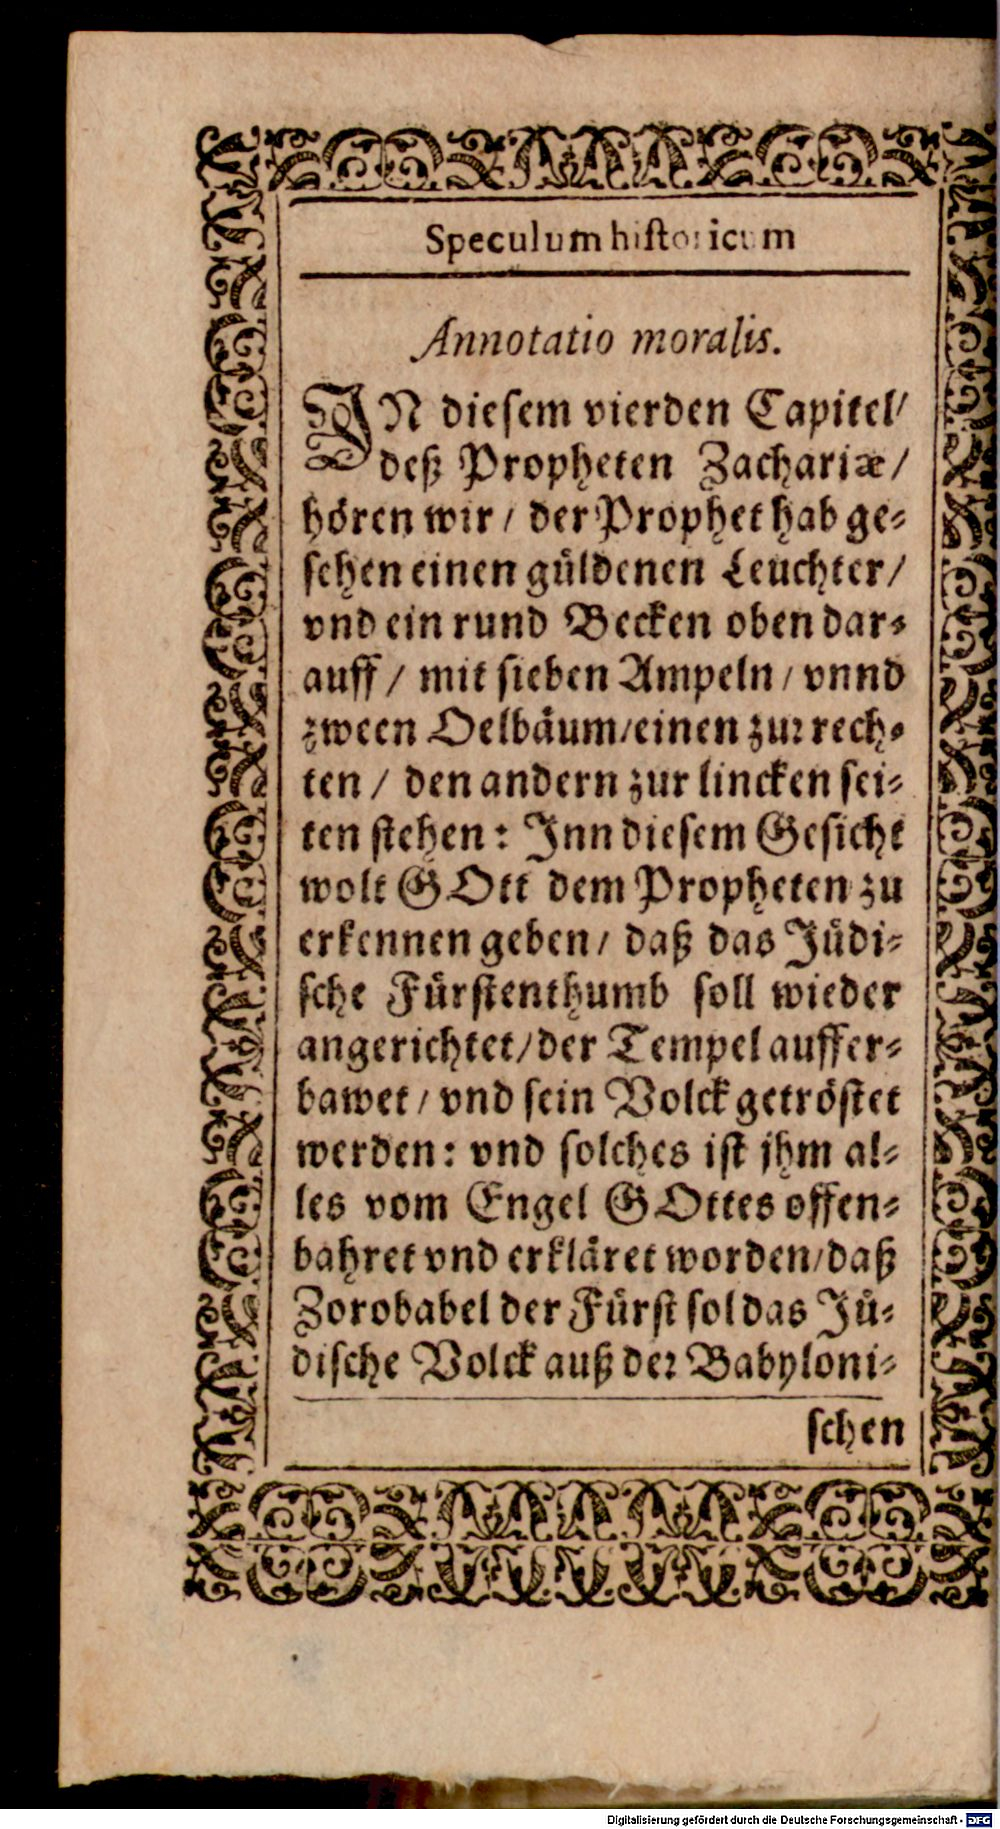 Speculum historicum
Annotatio moralis.
IN diesem vierden Capitel/
deß Propheten Zachariæ/
hören wir/ der Prophet hab ge-
sehen einen güldenen Leuchter/
vnd ein rund Becken oben dar-
auff/ mit sieben Ampeln/ vnnd
zween Oelbäum/einen zur rech-
ten/ den andern zur lincken sei-
ten stehen: Inn diesem Gesicht
wolt GOtt dem Propheten zu
erkennen geben/ daß das Jüdi-
sche Fürstenthumb soll wieder
angerichtet/der Tempel auffer-
bawet/ vnd sein Volck getröstet
werden: vnd solches ist jhm al-
les vom Engel GOttes offen-
bahret vnd erkläret worden/daß
Zorobabel der Fürst sol das Jü-
dische Volck auß der Babyloni-
schen
Digitalisierung gefördert durch die Deutsche Forschungsgemeinschaft - DFG